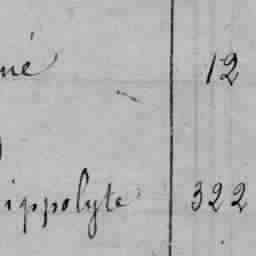 né 12
ippolyte 322